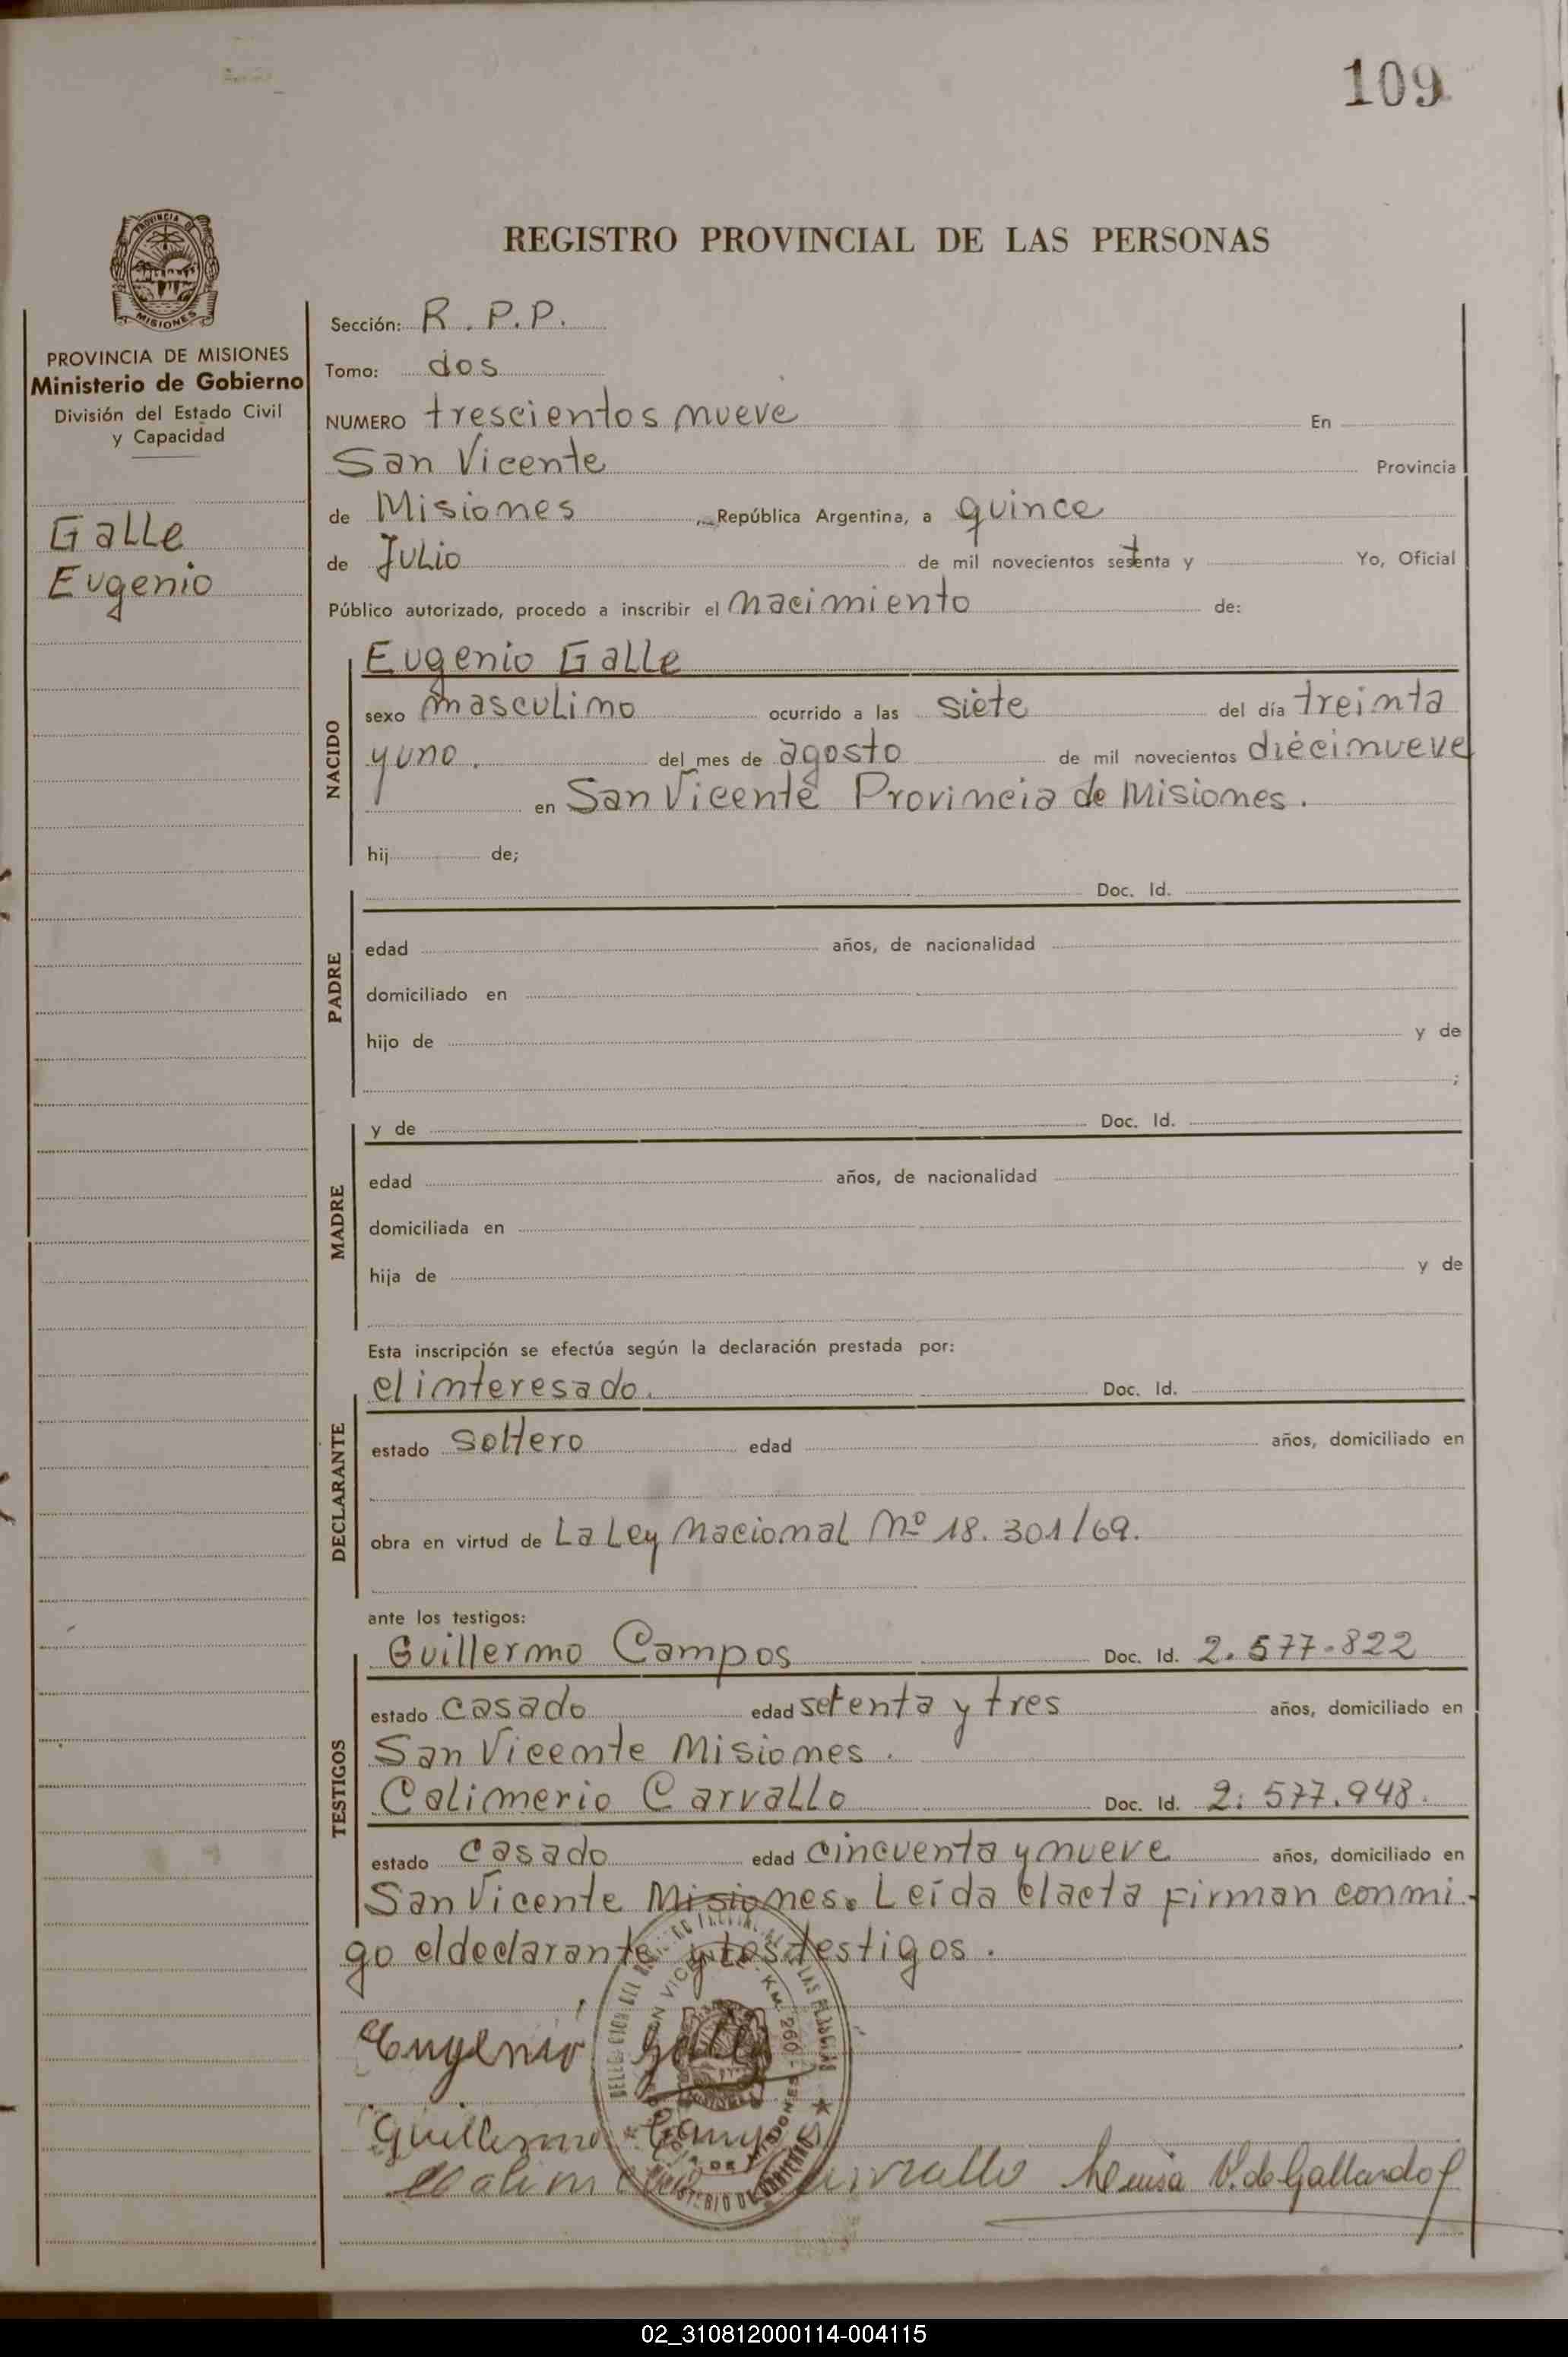 109
REGISTRO PROVINCIAL DE LAS PERSONAS
MISIONES
PROVINCIA DE MISIONES
Ministerio de Gobierno
División del Estado Civil
y Capacidad
Galle
Eugenio
Sección: R. P.P.
Tomo: dos
NUMERO trescientos nueve En
San Vicente Provincia
de Misiones República Argentina, a quince
de Julio de mil novecientos setenta y Yo, Oficial
Público autorizado, procedo a inscribir el nacimiento de:
NACIDO
Eugenio Galle
sexo masculino ocurrido a las siete del día treinta
y uno. del mes de agosto de mil novecientos diecinueve
en San Vicente Provincia de Misiones.
hij de;
PADRE
Doc. Id.
edad años, de nacionalidad
domiciliado en
hijo de y de
;
MADRE
y de Doc. Id.
edad años, de nacionalidad
domiciliada en
hija de y de
Esta inscripción se efectúa según la declaración prestada por:
DECLARANTE
el interesado. Doc. Id.
estado Soltero edad años, domiciliado en
obra en virtud de La Ley Nacional Nº 18.301/69.
ante los testigos:
TESTIGOS
Guillermo Campos Doc. Id. 2.577.822
estado casado edad setenta y tres años, domiciliado en
San Vicente Misiones.
Calimerio Carvallo Doc. Id. 2.577.948.
estado casado edad cincuenta y nueve años, domiciliado en
San Vicente Misiones. Leída el acta firman conmi
go el declarante y los testigos.
Eugenio Galle
Guillermo Campos
Calimerio Carvallo Luisa V. de Gallardo
02_310812000114-004115